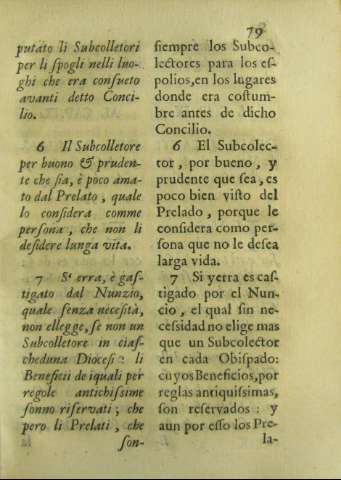 79
putato li Subcolletori
per li spogli nelli luo-
ghi che era consueto
avanti detto Conci-
lio.
6 Il Subcolletore
per buono & pruden-
te che sia, è poco ama-
to dal Prelato, quale
lo considera comme
persona, che non li
desidere lunga vita.
7 S' erra, è gas-
tigato dal Nunzio,
quale senza necesità,
non ellegge, se non un
Subcolletore in cias-
cheduna Diocesi: li
Beneficii de iquali per
regole antichissime
sonno riservati; che
pero li Prelati, che
son-
siempre los Subco-
lectores para los es-
polios, en los lugares
donde era costum-
bre antes de dicho
Concilio.
6 El Subcolec-
tor, por bueno, y
prudente que sea, es
poco bien visto del
Prelado, porque le
considera como per-
sona que no le desea
larga vida.
7 Si yerra es cas-
tigado por el Nun-
cio, el qual sin ne-
cessidad no elige mas
que un Subcolector
en cada Obispado:
cuyos Beneficios, por
reglas antiquissimas,
son reservados: y
aun por esso los Pre-
la-